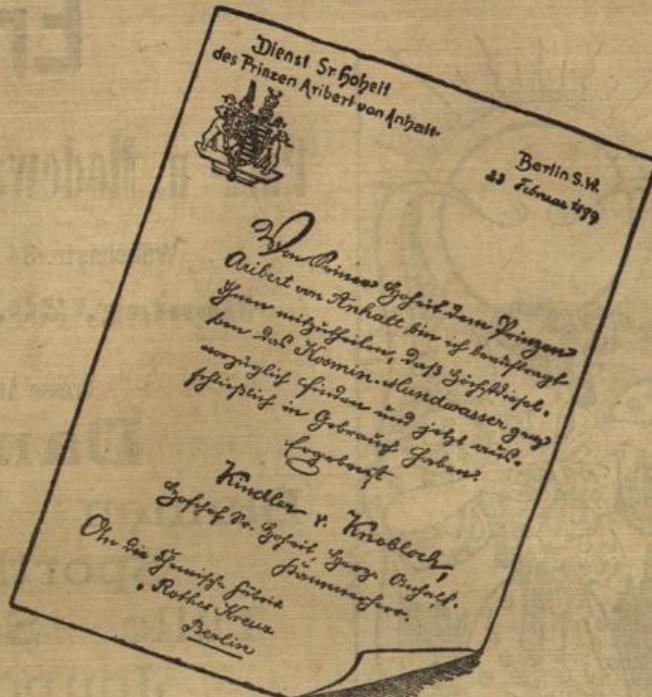 Dienst Sr. Hoheit
des Prinzen Aribert von Anhalt.
Berlin S.W.
23 Februar 1899
Von Seiner Hoheit dem Prinzen
Aribert von Anhalt bin ich beauftragt
Ihnen mitzutheilen, daß Höchstdiesel-
ben das Kosmin-Mundwasser ganz
vorzüglich finden und jetzt aus-
schließlich in Gebrauch haben.
Ergebenst
Kindler v. Knobloch,
Hofchef Sr. Hoheit, Herz. Anhalt.
Kammerherr.
An die Chemische Fabrik
Rothes Kreuz
Berlin